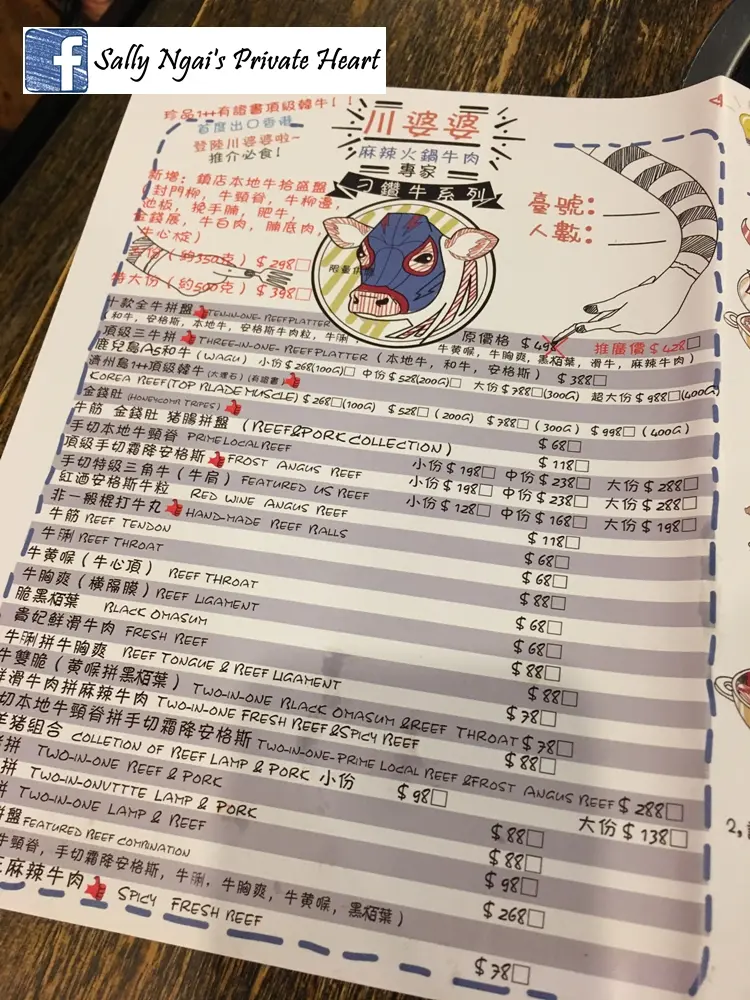 f Sally Ngai's Private Heart
珍品1++有證書頂級韓牛!!
首度出口香港
登陸川婆婆啦~
推介必食!
川婆婆
麻辣火鍋牛肉
專家
刁鑽牛系列
臺號:
人數:
新增: 鎮店本地牛拾盛盤
(封門柳, 牛頸脊, 牛柳邊,
地板, 挽手腩, 肥牛,
金錢展, 牛白肉, 腩底肉,
牛心椗)
(約350克) $298□
特大份 (約500克) $398□
限量
十款全牛拼盤 TEN-IN-ONE-BEEF PLATTER 原價格 $498 推廣價 $428□
(和牛, 安格斯, 本地牛, 安格斯牛肉粒, 牛脷, 牛黃喉, 牛胸爽, 黑栢葉, 滑牛, 麻辣牛肉)
頂級三牛拼 THREE-IN-ONE-BEEF PLATTER (本地牛, 和牛, 安格斯) $388□
鹿兒島A5和牛 (WAGU) 小份 $268(100G)□ 中份 $528(200G)□ 大份 $788□(300G) 超大份 $988□(400G)
濟州島1++頂級韓牛(大理石)(有證書)
KOREA BEEF(TOP BLADE MUSCLE) $268□(100G) $528□(200G) $788□(300G) $998□(400G)
金錢肚 (HONEYCOMB TRIPES) $68□
牛筋 金錢肚 豬腸拼盤 (BEEF&PORK COLLECTION) $118□
手切本地牛頸脊 PRIME LOCAL BEEF 小份 $198□ 中份 $238□ 大份 $288□
頂級手切霜降安格斯 FROST ANGUS BEEF 小份 $198□ 中份 $238□ 大份 $288□
手切特級三角牛 (牛肩) FEATURED US BEEF 小份 $128□ 中份 $168□ 大份 $198□
紅酒安格斯牛粒 RED WINE ANGUS BEEF $118□
非一般棍打牛丸 HAND-MADE BEEF BALLS $68□
牛筋 BEEF TENDON $68□
牛脷 BEEF THROAT $88□
牛黃喉 (牛心頂) BEEF THROAT $68□
牛胸爽 (橫隔膜) BEEF LIGAMENT $68□
脆黑栢葉 BLACK OMASUM $88□
貴妃鮮滑牛肉 FRESH BEEF $88□
牛脷拼牛胸爽 BEEF TONGUE & BEEF LIGAMENT $78□
牛雙脆 (黃喉拼黑栢葉) TWO-IN-ONE BLACK OMASUM & BEEF THROAT $78□
鮮滑牛肉拼麻辣牛肉 TWO-IN-ONE FRESH BEEF&SPICY BEEF $88□
切本地牛頸脊拼手切霜降安格斯 TWO-IN-ONE-PRIME LOCAL BEEF &FROST ANGUS BEEF $288□
羊豬組合 COLLETION OF BEEF LAMP & PORK 小份 $98□ 大份 $138□
拼 TWO-IN-ONE BEEF & PORK $88□
拼 TWO-IN-ONUTTTE LAMP & PORK $88□
拼 TWO-IN-ONE LAMP & BEEF $98□
拼盤 FEATURED BEEF COMBINATION $268□
牛頸脊, 手切霜降安格斯, 牛脷, 牛胸爽, 牛黃喉, 黑栢葉)
麻辣牛肉 SPICY FRESH BEEF $78□
2,